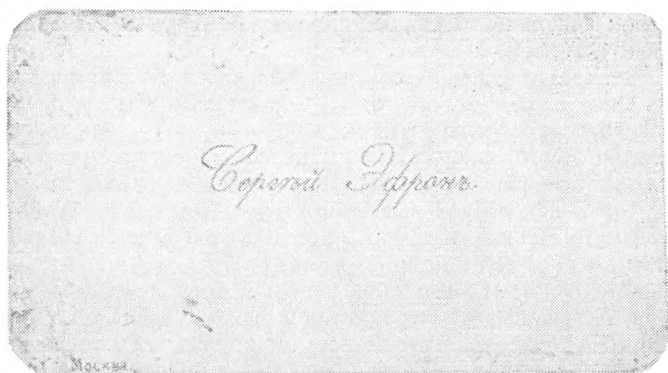 Сергѣй Эфронъ.
Москва.